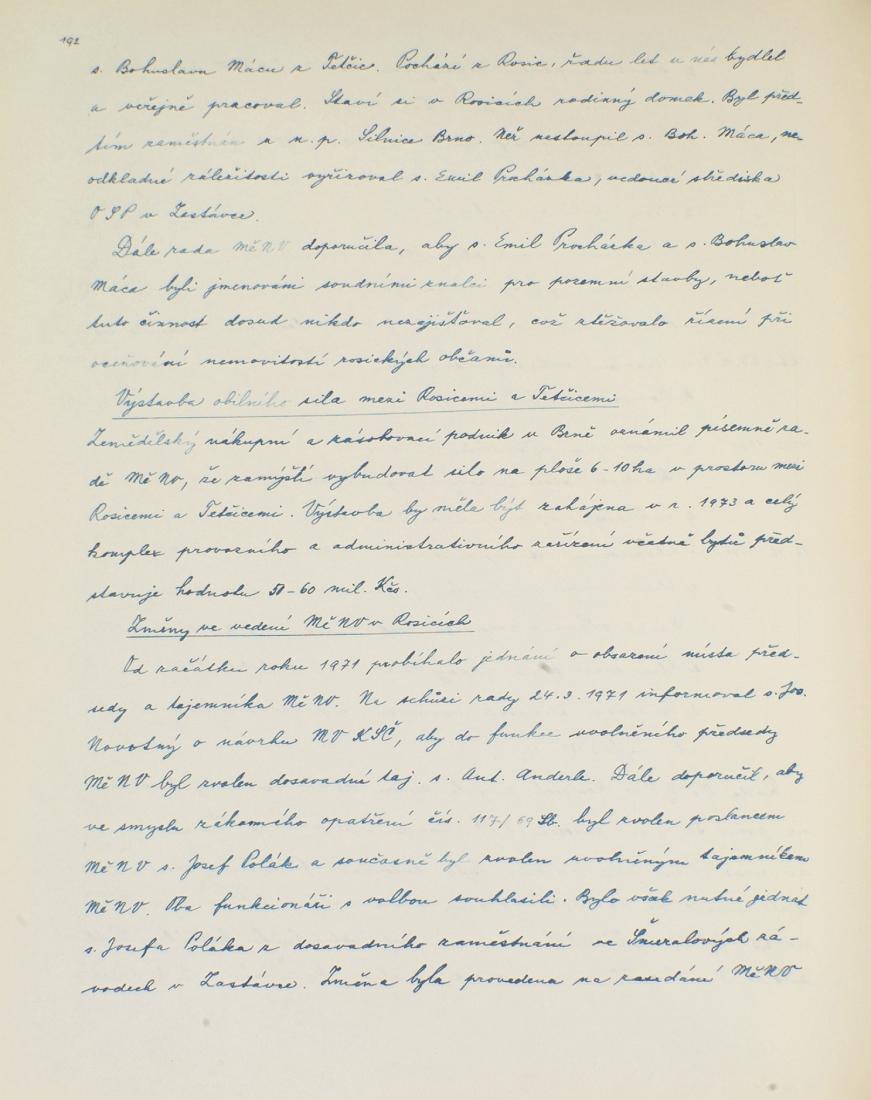 192
s. Bohuslavu Mácu z Tetčic. Pochází z Rosic, řadu let u nás bydlel
a veřejně pracoval. Staví si v Rosicích rodinný domek. Byl před-
tím zaměstnán u n.p. Silnice Brno. Než nastoupil s. Boh. Máca, ne-
odkladné záležitosti vyřizoval s. Emil Procházka, vedoucí střediska
OSP v Zastávce.
Dále rada MěNV doporučila, aby s. Emil Procházka a s. Bohuslav
Máca byli jmenováni soudními znalci pro pozemní stavby, neboť
tuto činnost dosud nikdo nezajišťoval, což ztěžovalo řízení při
oceňování nemovitostí rosických občanů.
Výstavba obilního sila mezi Rosicemi a Tetčicemi
Zemědělský nákupní a zásobovací podnik v Brně oznámil písemně ra-
dě MěNV, že zamýšlí vybudovat silo na ploše 6-10 ha v prostoru mezi
Rosicemi a Tetčicemi. Výstavba by měla být zahájena v r. 1973 a celý
komplex provozního a administrativního zařízení včetně bytů před-
stavuje hodnotu 50-60 mil. Kčs.
Změny ve vedení MěNV v Rosicích
Od začátku roku 1971 probíhalo jednání o obsazení místa před-
sedy a tajemníka MěNV. Na schůzi rady 24.3.1971 informoval s. Jos.
Novotný o návrhu MV KSČ, aby do funkce uvolněného předsedy
MěNV byl zvolen dosavadní taj. s. Ant. Anderle. Dále doporučil, aby
ve smyslu zákonného opatření čís. 117/69 Sb. byl zvolen poslancem
MěNV s. Josef Polák a současně byl zvolen uvolněným tajemníkem
MěNV. Oba funkcionáři s volbou souhlasili. Bylo však nutné jednat
s. Josefa Poláka z dosavadního zaměstnání ve Šmeralových zá-
vodech v Zastávce. Změna byla provedena na zasedání MěNV